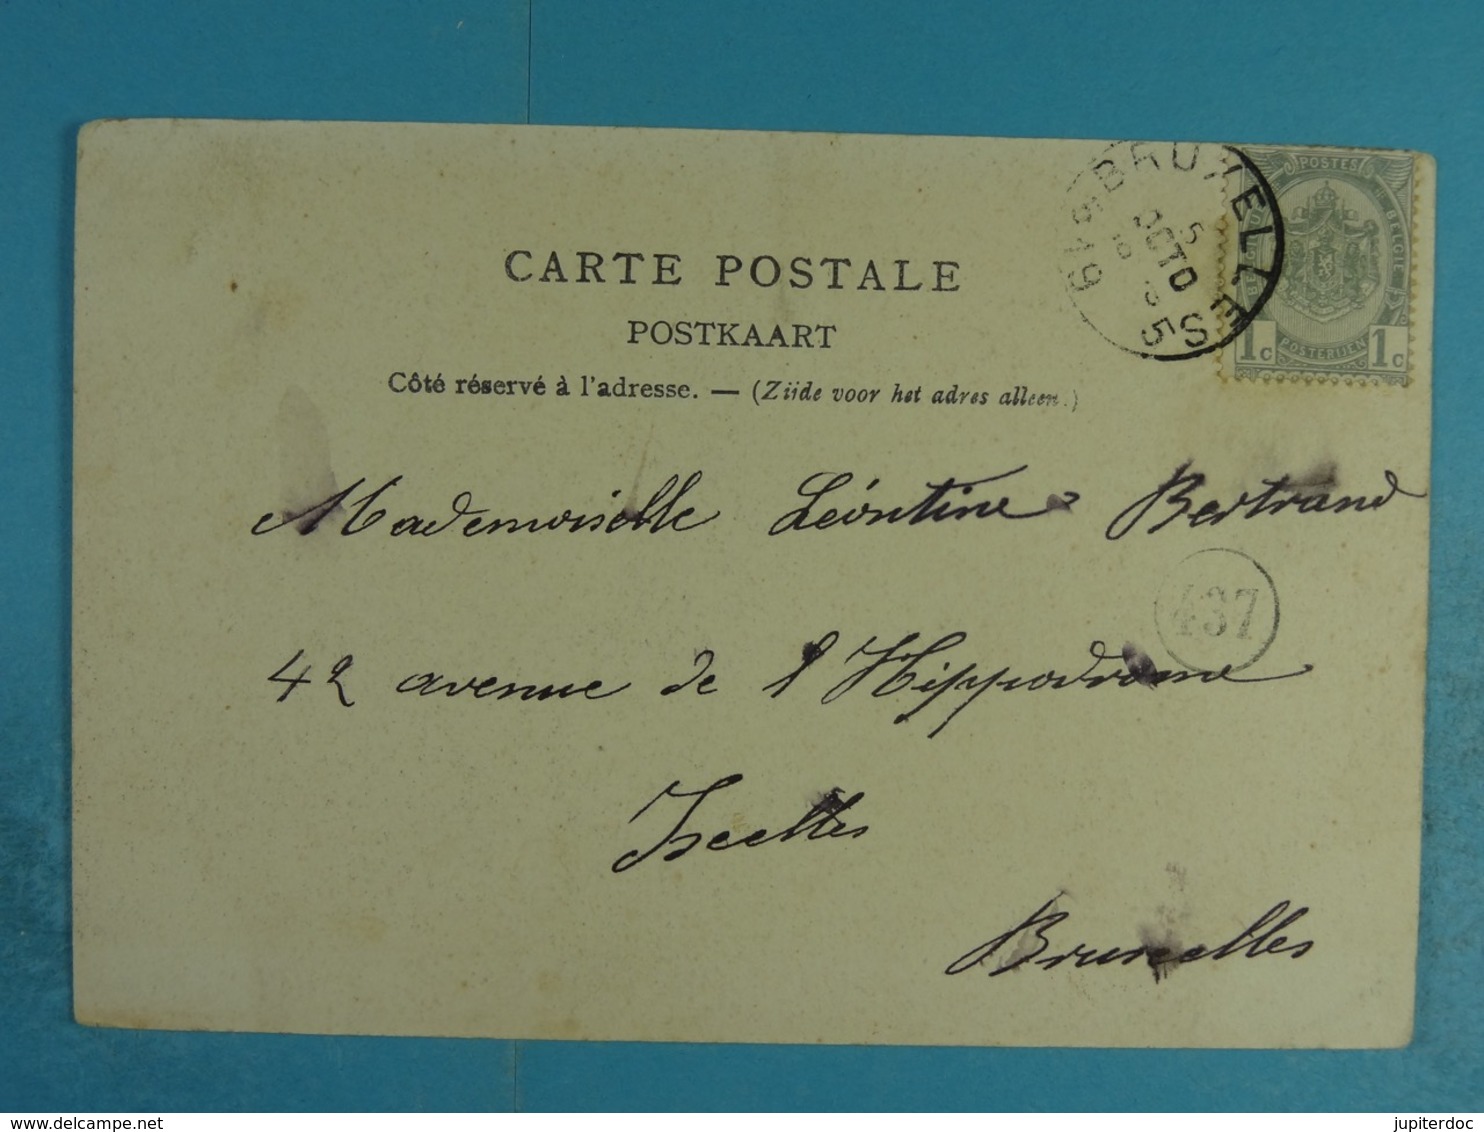 CARTE POSTALE
POSTKAART
Côté réservé à l'adresse. — (Zijde voor het adres alleen.)
BRUXELLES 5
5
OCTO
POSTES
BELGIQUE
DE BELGIË
1c POSTERIJEN 1c
Mademoiselle Léontine Bertrand
437
42 avenue de l'Hippodrome
Ixelles
Bruxelles
www.delcampe.net
jupiterdoc